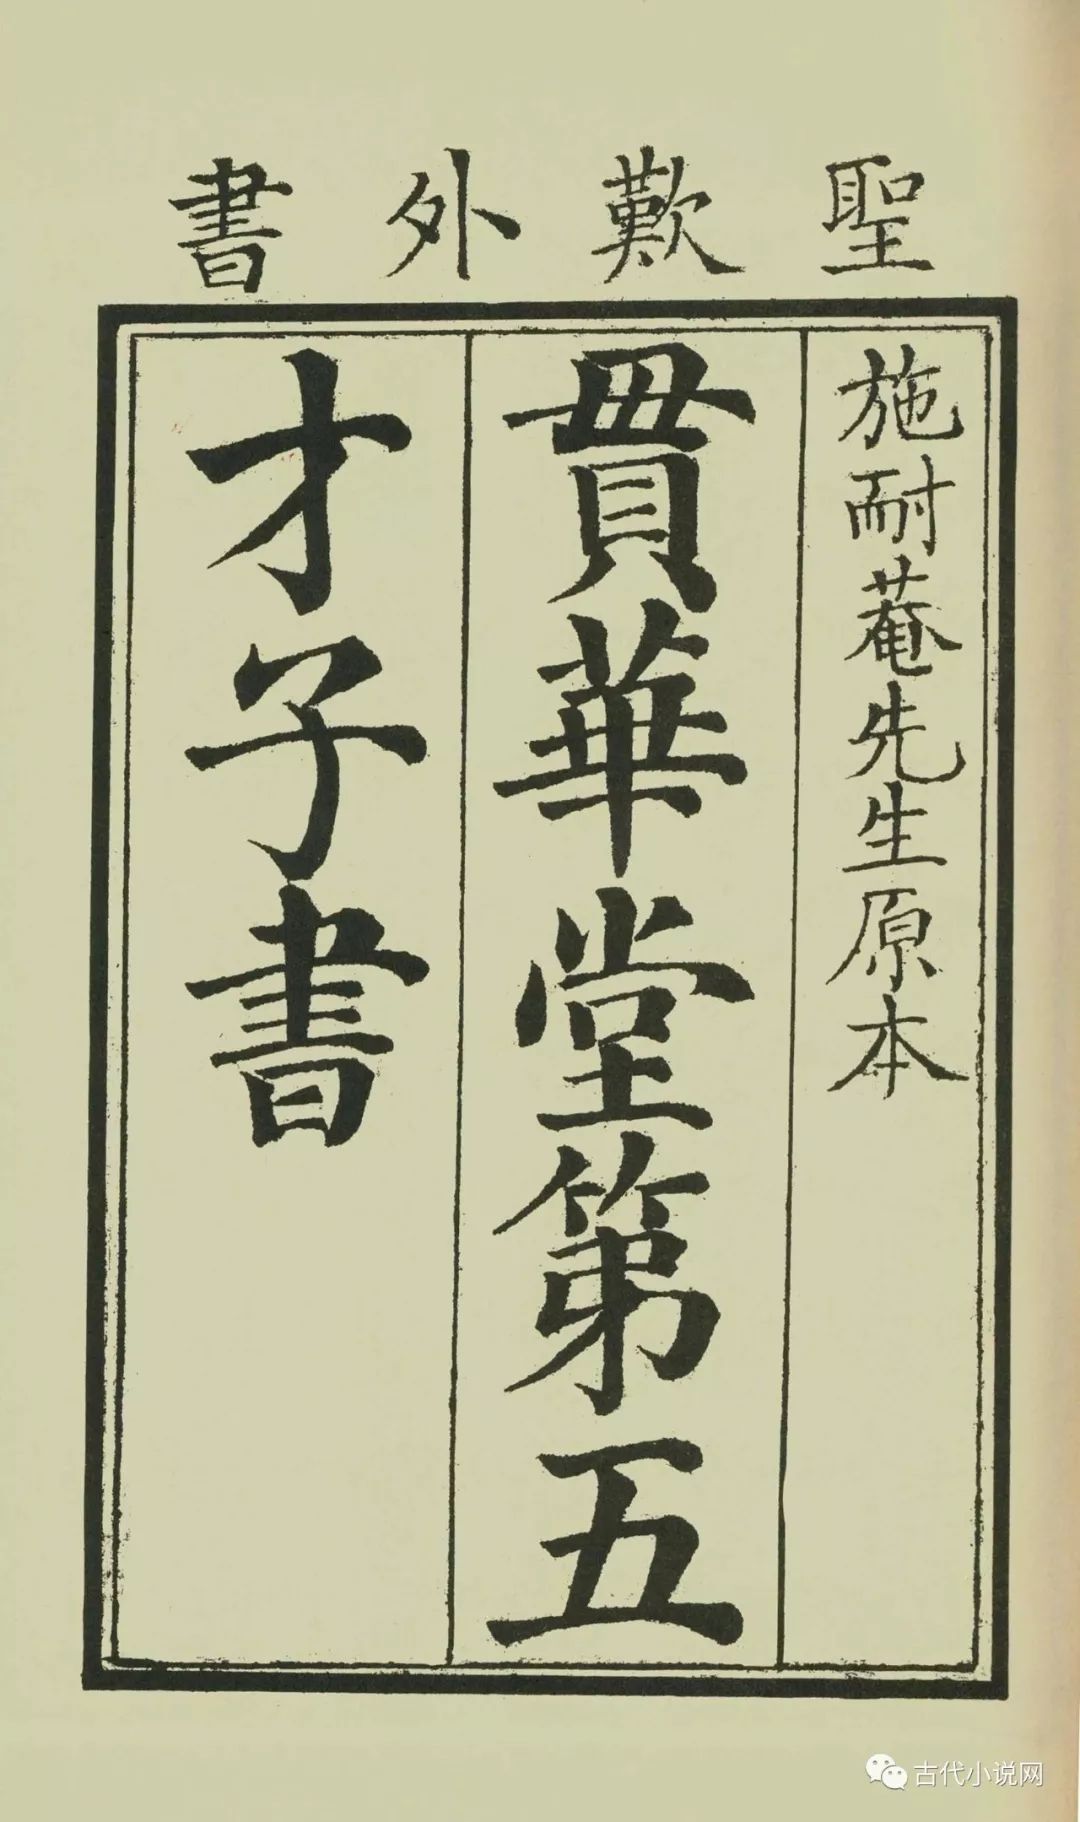 聖歎外書
施耐菴先生原本
貫華堂第五
才子書
古代小说网